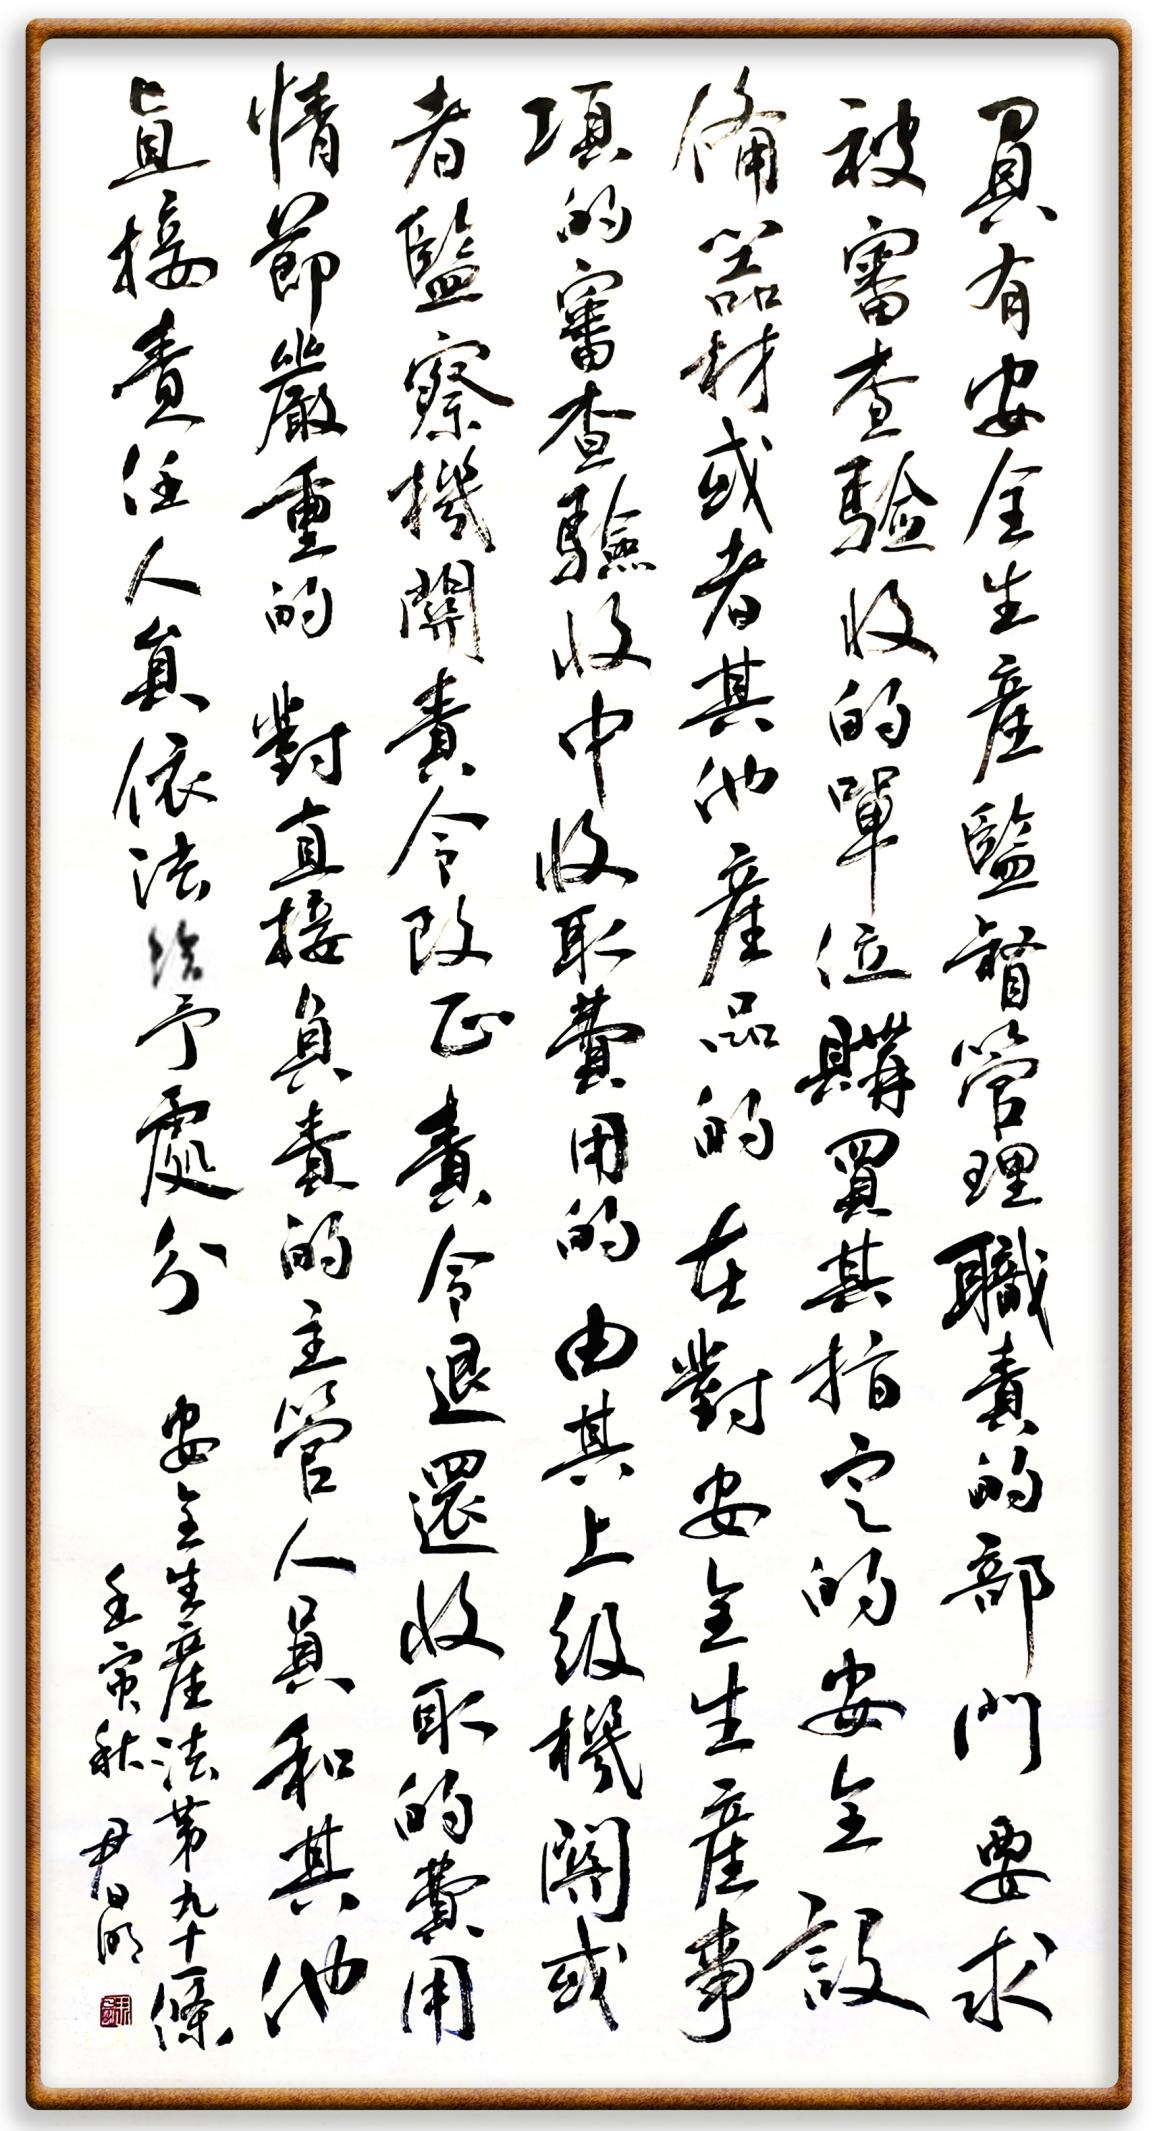 負有安全生産監督管理職責的部門 要求
被審查驗收的單位購買其指定的安全設
備器材或者其他産品的 在對安全生産事
項的審查驗收中收取費用的 由其上級機關或
者監察機關責令改正 責令退還收取的費用
情節嚴重的 對直接負責的主管人員和其他
直接責任人員依法給予處分
安全生産法第九十一條
壬寅秋 尹